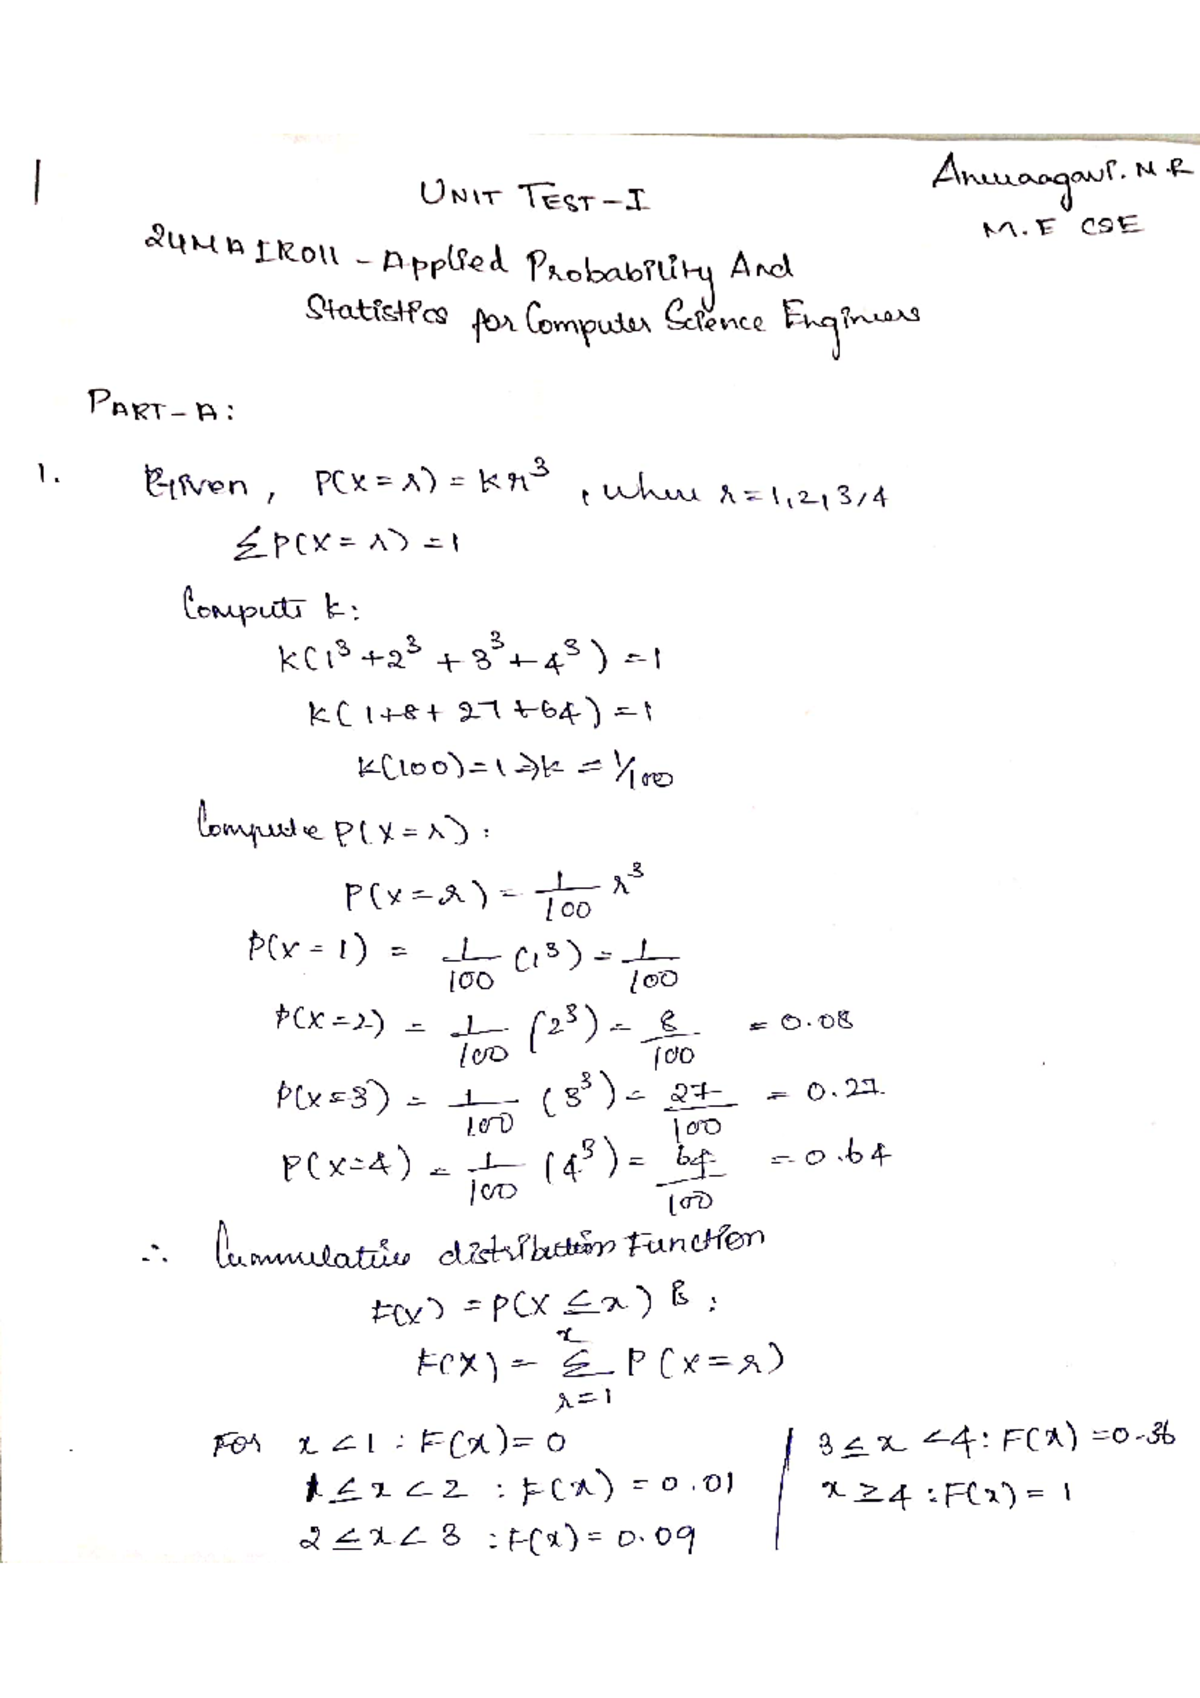 1
UNIT TEST-I
M.E CSE
24MAIR011 - Applied Probability And
Statistics for Computer Science Engineers
PART-A:
1. Given, P(X=r) = kr³, where r=1,2,3,4
ΣP(X=r)=1
Compute k:
k(1³+2³+3³+4³)=1
k(1+8+27+64)=1
k(100)=1⇒k=1/100
Compute P(X=r):
P(X=r)=1/100 r³
P(X=1) = 1/100 (1³) = 1/100
P(X=2) = 1/100 (2³) = 8/100 = 0.08
P(X=3) = 1/100 (3³) = 27/100 = 0.27
P(X=4) = 1/100 (4³) = 64/100 = 0.64
∴ Cummulative distribution Function
F(x) = P(X≤x) is:
F(X) = Σ_{r=1}^{x} P(X=r)
For x<1 : F(x)=0
1≤x<2 : F(x)=0.01
2≤x<3 : F(x)=0.09
3≤x<4 : F(x)=0.36
x≥4 : F(x)=1